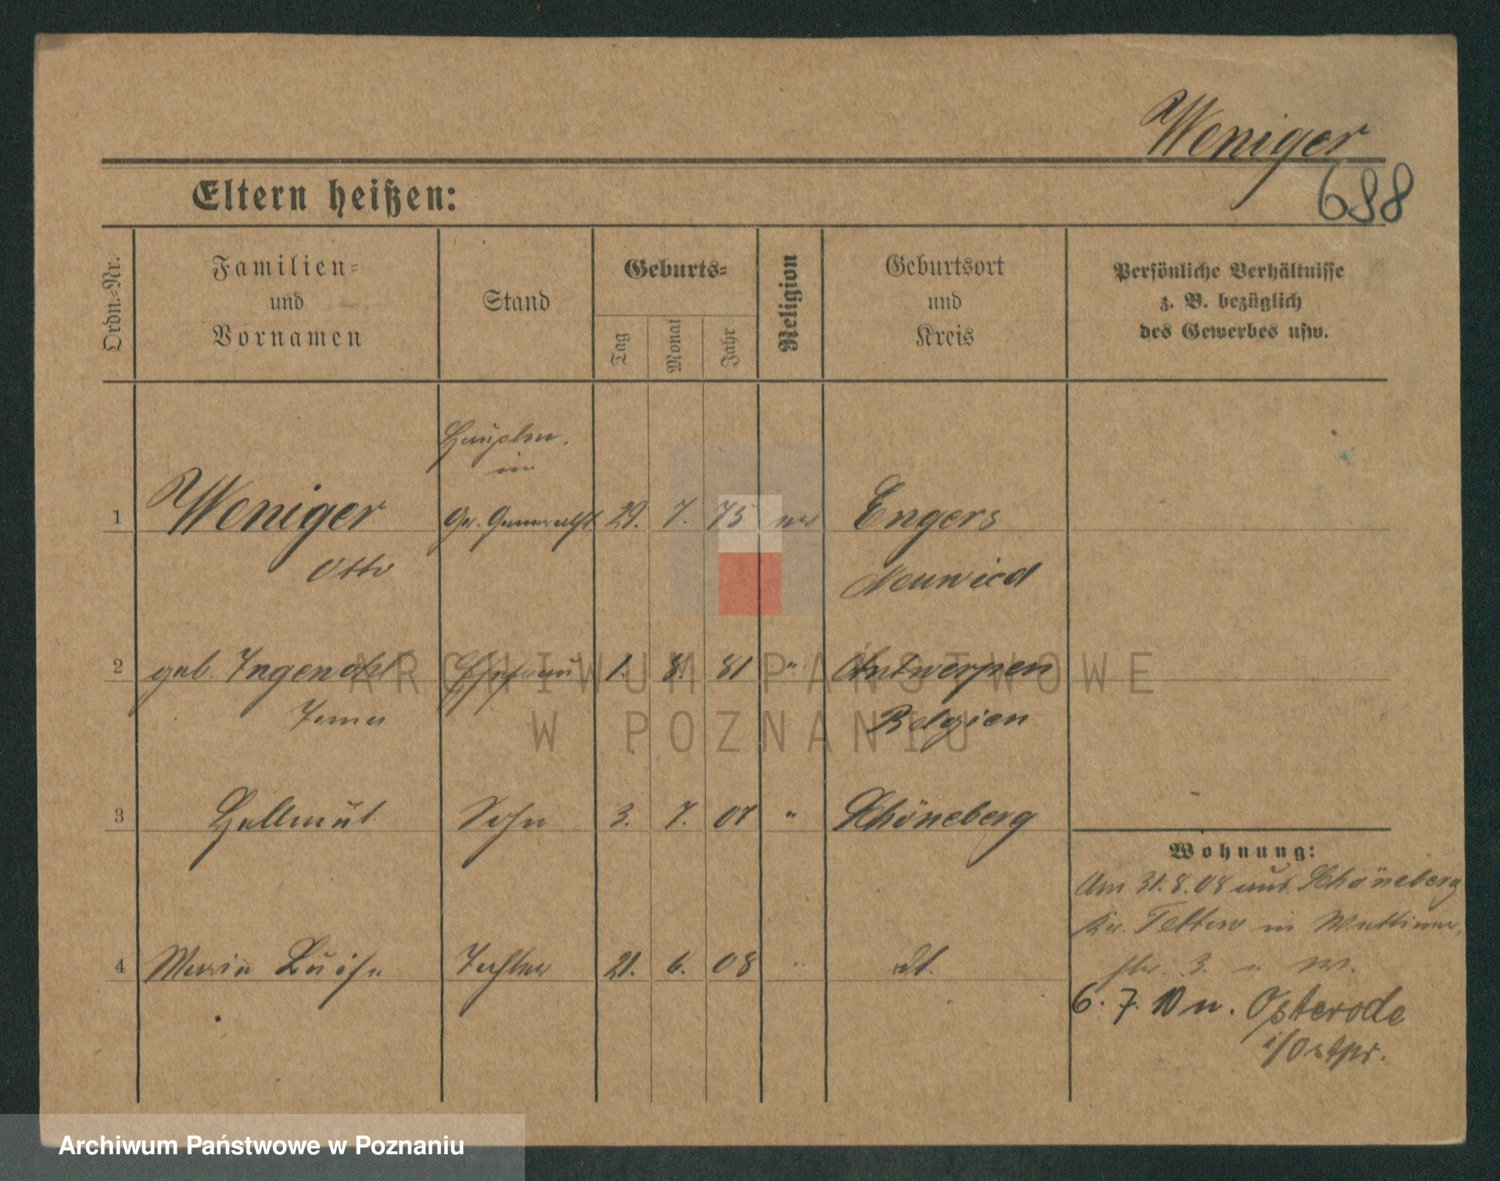 Weniger
688
Eltern heißen:
Ordn.-Nr.
Familien-
und
Vornamen
Stand
Geburts-
Tag
Monat
Jahr
Religion
Geburtsort
und
Kreis
Persönliche Verhältnisse
z. B. bezüglich
des Gewerbes usw.
Hauptm.
im
1 Weniger Gr. Generalst. 29. 7. 75 Engers
Otto Neuwied
2 geb. Ingenohl Ehefrau 1. 8. 81 " Antwerpen
Irma Belgien
3 Hellmut Sohn 3. 7. 07 " Schöneberg
Wohnung:
Am 31.8.08 aus Schöneberg
Kr. Teltow in
4 Marie Luise Tochter 21. 6. 08 " dt.
str. 3.
6. 7. 10 n. Osterode
i/Ostpr.
ARCHIWUM PAŃSTWOWE
W POZNANIU
Archiwum Państwowe w Poznaniu